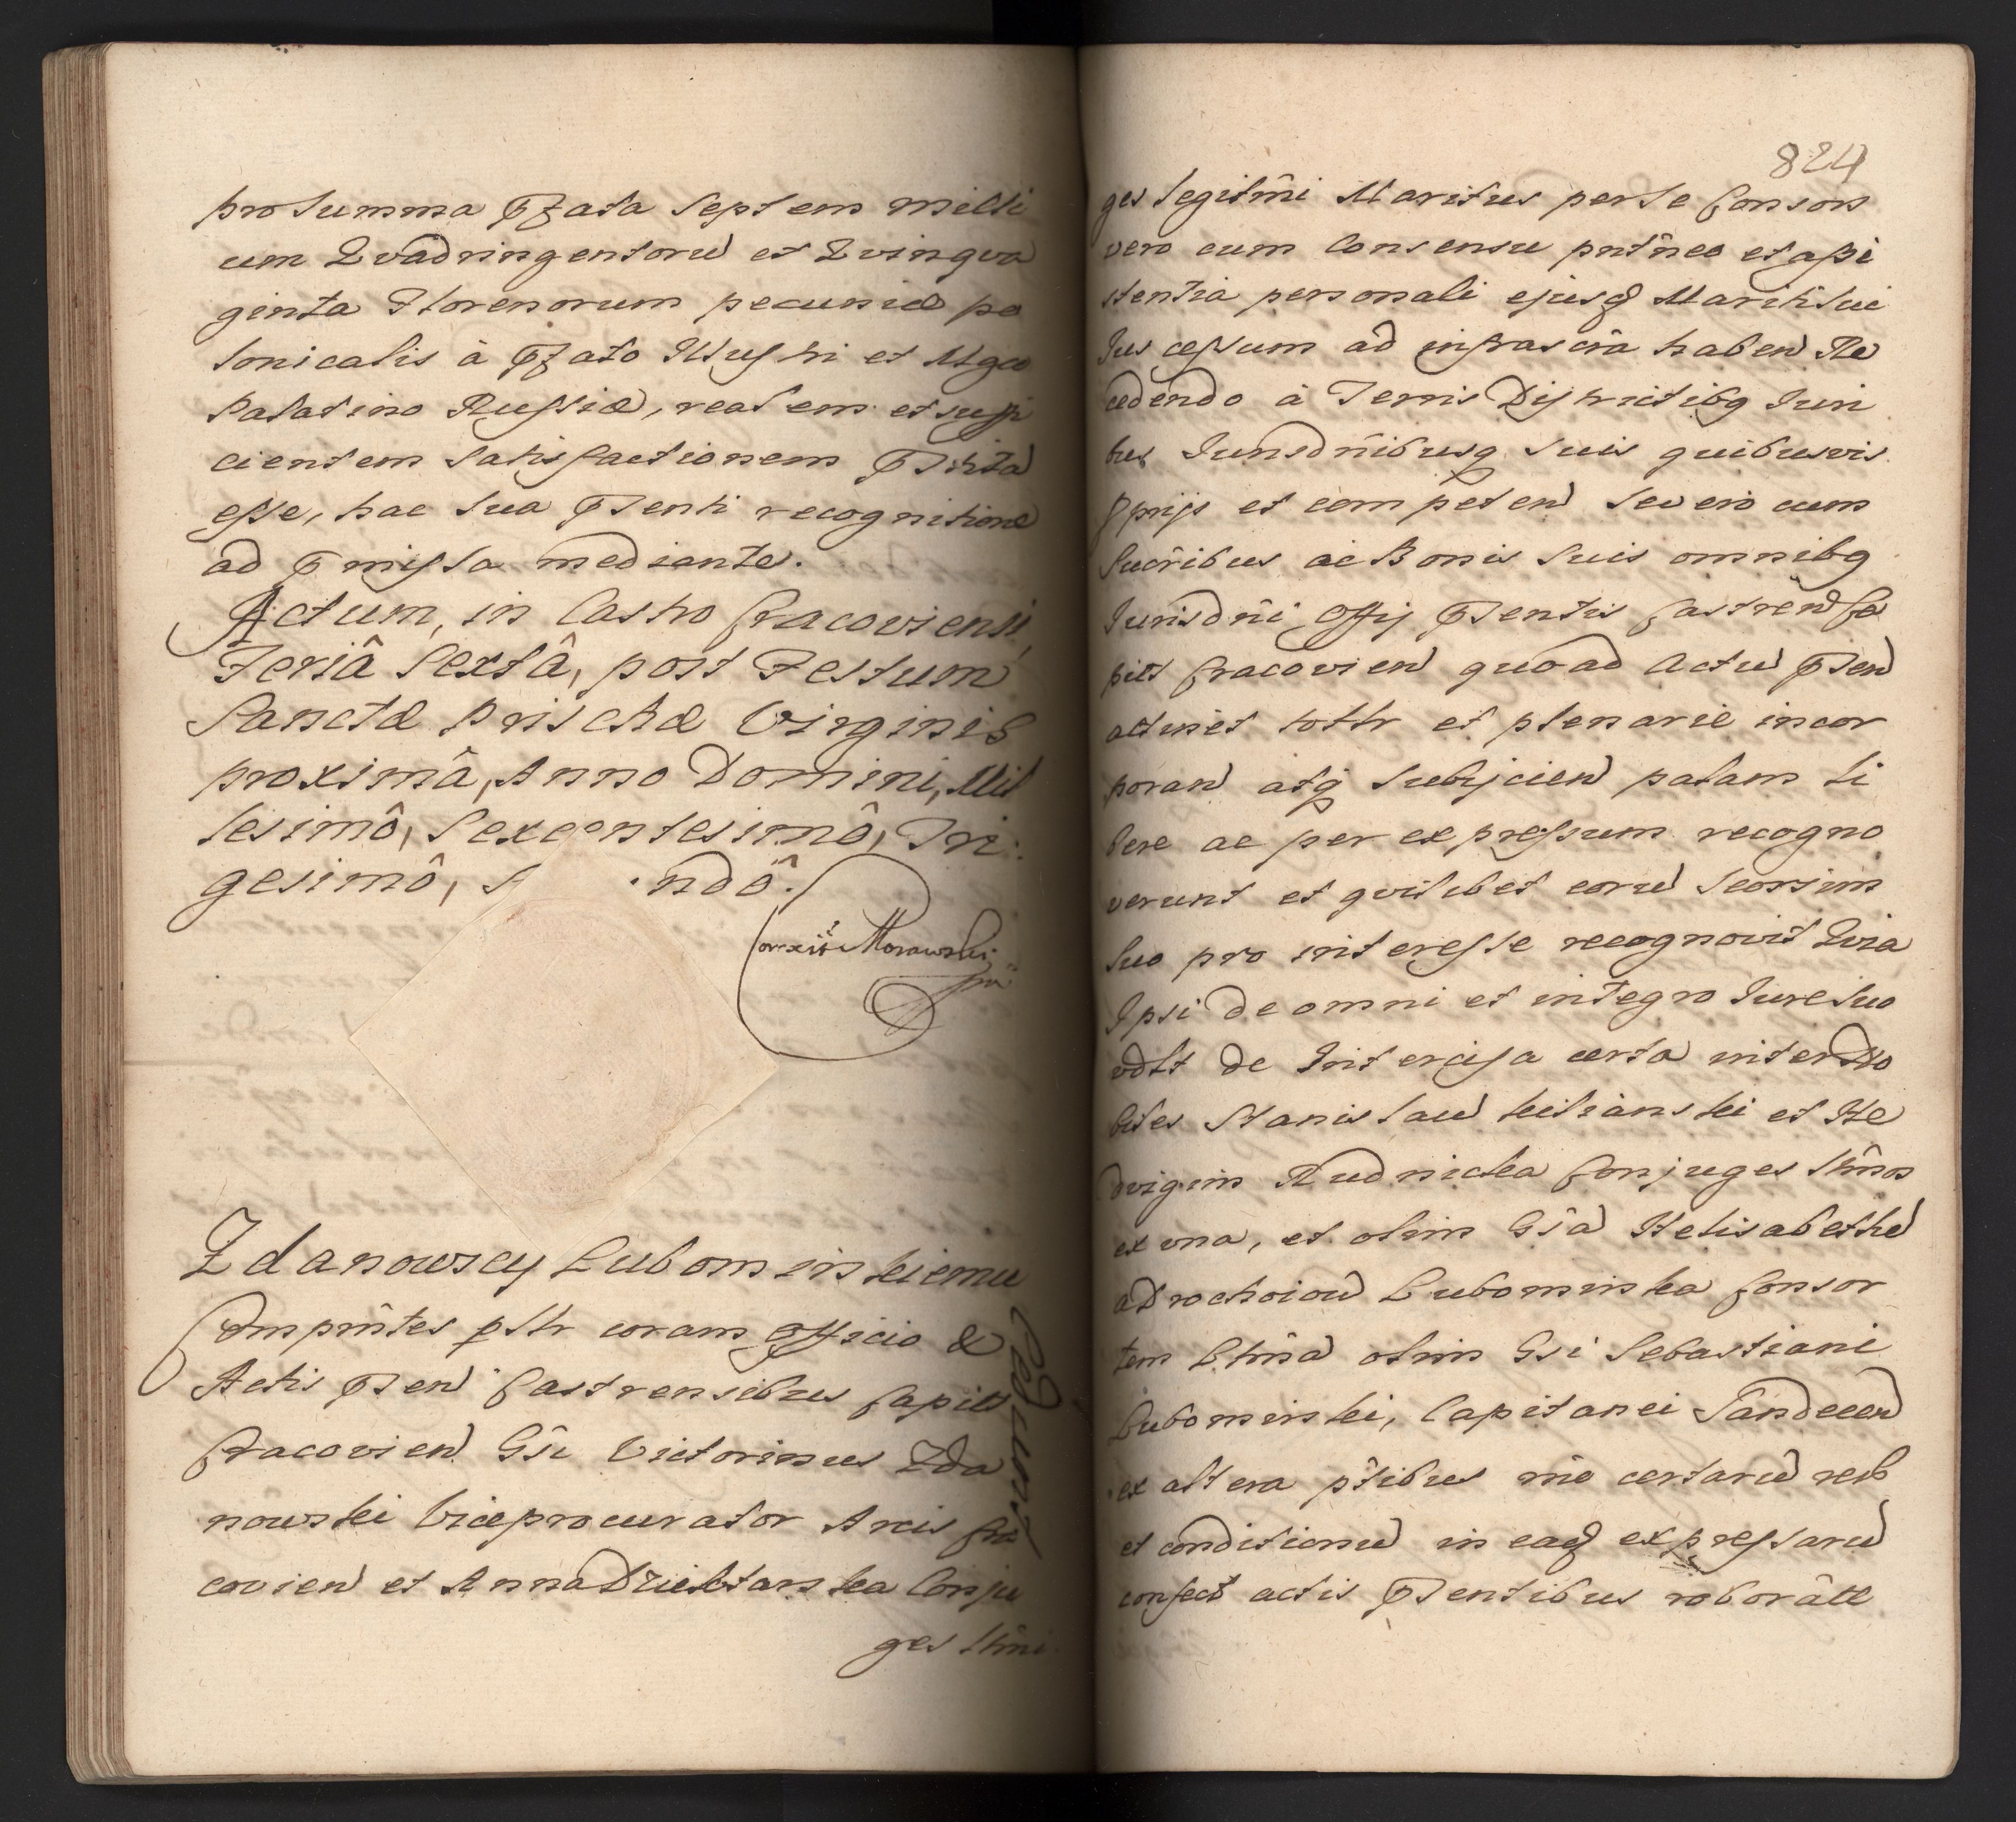 pro summa p̃fata Septem milli
um Qvadringentorū et Qvinqva
ginta Florenorum pecuniæ po
lonicalis à p̃fato Illustri et Mgco
Palatino Russiæ, realem et suffi
cientem satisfactionem
esse, hac sua p̃senti recognitione
ad p̃missa mediante.
Actum, in Castro Cracoviensi,
Feriâ Sextâ, post Festum
Sanctæ Priscæ Virginis
proximâ, Anno Domini, Mil
lesimô, Sexcentesimô, Tri
gesimô, S ndô.
Corexit Morawski
mp
Zdanowscy Lubomirskiemu
Comparñtes psltr coram Officio &
Actis p̃sen Castrensibus Capitt
Cracovien Gsi Victorinus Zda
nowski Viceprocurator Arcis Cra
covien et Anna Conju
ges lttmi
824
ges legitmi Maritus per se Conson
vero cum Consensu pntneo et assi
stentia personali ejusd Mariti sui
Jus cessum ad infrascra haben Re
cedendo à Terris Districtibq Juri
bus Jurisdnibusq suis quibusvis
pprijs et competen se vero cum
Sucribus ac Bonis suis omnibq
Jurisdni Offij p̃sentis Castren Ca
pitt Cracovien quoad Actū p̃sen
attinet tottr et plenarie incor
poran atq subijcien palam li
bere ac per expressum recogno
verunt et qvilibet eorū seorsim
suo pro interesse recognovit Qvia
Ipsi de omni et integro Jure suo
vdltt de Intercisa certa inter No
biles Stanislaū et He
dvigim Rudnicka Conjuges lttmos
ex una, et olim Gsa Helisabethā
a Brochoiow Lubomirska Consor
tem lttmā olim Gsi Sebastiani
Lubomirski, Capitanei Sandecen
ex altera ptibus rñe certarū rerū
et conditionū in eaq expressarū
confect actis p̃sentibus roborāte